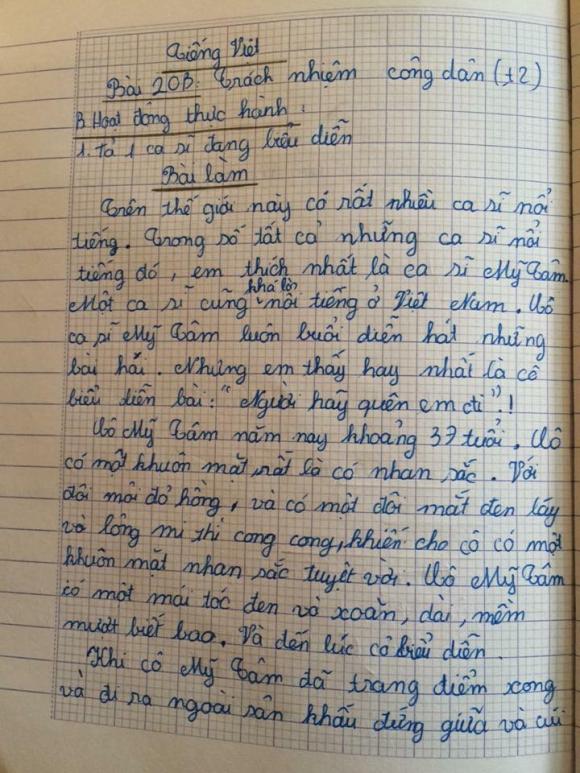 Tiếng Việt
Bài 20B: Trách nhiệm công dân (t2)
B. Hoạt động thực hành:
1. Tả 1 ca sĩ đang biểu diễn
Bài làm
Trên thế giới này có rất nhiều ca sĩ nổi
tiếng. Trong số tất cả những ca sĩ nổi
tiếng đó, em thích nhất là ca sĩ Mỹ Tâm.
Một ca sĩ cũng khá lớn nổi tiếng ở Việt Nam. Cô
ca sĩ Mỹ Tâm luôn buổi diễn hát những
bài hát. Nhưng em thấy hay nhất là cô
biểu diễn bài: "Người hãy quên em đi".!
Cô Mỹ Tâm năm nay khoảng 37 tuổi. Cô
có một khuôn mặt, rất là có nhan sắc. Với
đôi môi đỏ hồng, và có một đôi mắt đen láy
và lông mi thì cong cong, khiến cho cô có một
khuôn mặt nhan sắc tuyệt vời. Cô Mỹ Tâm
có một mái tóc đen và xoăn, dài, mềm
mượt biết bao. Và đến lúc cô biểu diễn.
Khi cô Mỹ Tâm đã trang điểm xong
và đi ra ngoài sân khấu đứng giữa và cúi